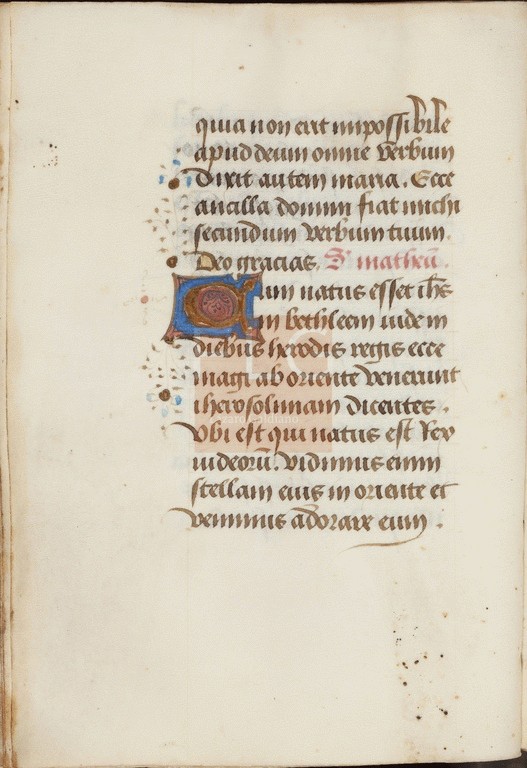 quia non erit impossibile
apud deum omne verbum
Dixit autem maria. Ecce
ancilla domini fiat michi
secundum verbum tuum.
Deo gracias. S' matheū.
Cum natus esset ihs
in bethleem iude in
diebus herodis regis ecce
magi ab oriente venerunt
iherosolimam dicentes.
Vbi est qui natus est Rex
iudeorū. vidimus enim
stellam eius in oriente et
venimus adorare eum.